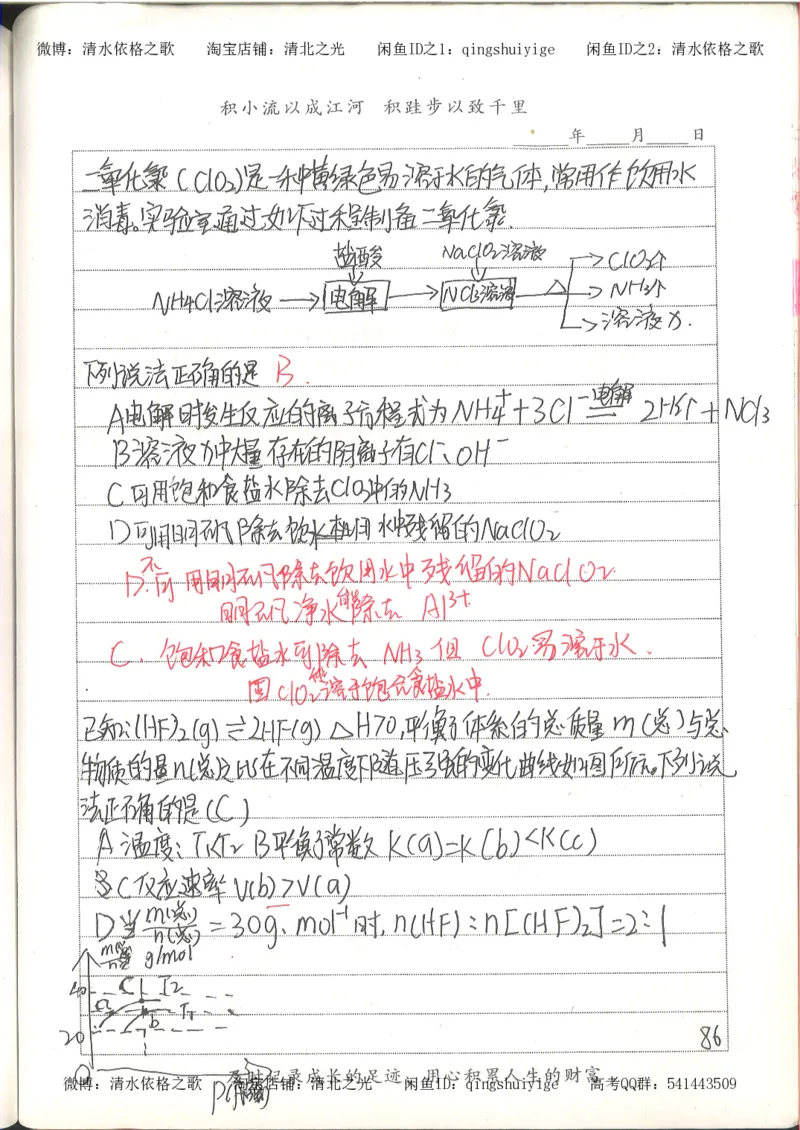 微博：清水依格之歌 淘宝店铺：清北之光 闲鱼ID之1：qingshuiyige 闲鱼ID之2：清水依格之歌
积小流以成江河 积跬步以致千里
年 月 日
二氧化氯(ClO2)是一种黄绿色易溶于水的气体,常用作饮用水
消毒。实验室通过如下过程制备二氧化氯.
盐酸 NaClO2溶液
NH4Cl溶液 → 电解 → NCl3溶液 △ → ClO2↑
→ NH3↑
→ 溶液X.
下列说法正确的是 B.
A电解时发生反应的离子方程式为NH4⁺+3Cl⁻ 电解 = 2H2↑+NCl3
B溶液X中大量存在的阴离子有Cl⁻、OH⁻
C可用饱和食盐水除去ClO2中的NH3
D可用明矾除去饮用水中残留的NaClO2
D.不可用明矾除去饮用水中残留的NaClO2.
明矾净水能除去 Al3+
C. 饱和食盐水可除去 NH3 但 ClO2易溶于水.
因ClO2能溶于饱合食盐水中.
已知:(HF)2(g)⇌2HF(g) △H>0,平衡体系的总质量m(总)与总
物质的量n(总)之比在不同温度下随压强的变化曲线如图所示。下列说
法正确的是(C)
A温度:T1<T2 B平衡常数K(a)=K(b)<K(c)
C反应速率V(b)>V(a)
D当m(总)/n(总)=30g·mol⁻¹时,n(HF):n[(HF)2]=2:1
m总/n总 g/mol
40 C T2
a T1
b
20
86
0
及时记录成长的足迹 用心积累人生的财富
微博：清水依格之歌 淘宝店铺：清北之光 闲鱼ID：qingshuiyige 高考QQ群：541443509